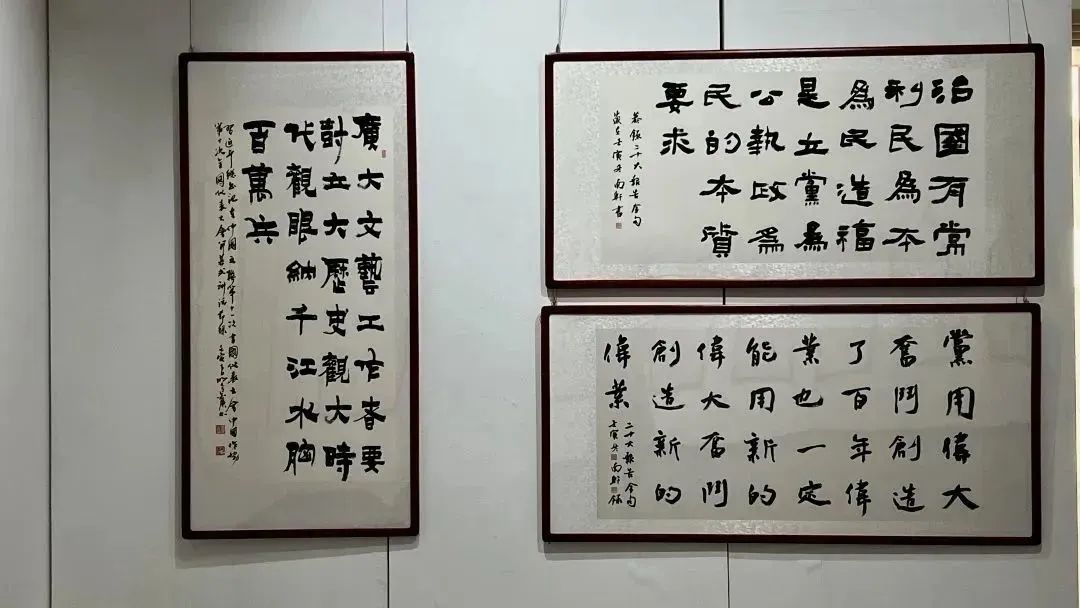 廣大文藝工作者要
樹立大歷史觀大時
代觀眼納千江水胸
百萬兵
習近平總書記在中國文聯第十一次全國代表大会中國作協
第十次全國代表大会開幕式講話節錄
治國有常
利民爲本
爲民造福
是立黨爲
公執政爲
民的本質
要求
恭錄二十大報告金句
歲在壬寅冬南軒書
黨用偉大
奮鬥創造
了百年偉
業也一定
能用新的
偉大奮鬥
創造新的
偉業
二十大報告金句
壬寅冬南軒錄